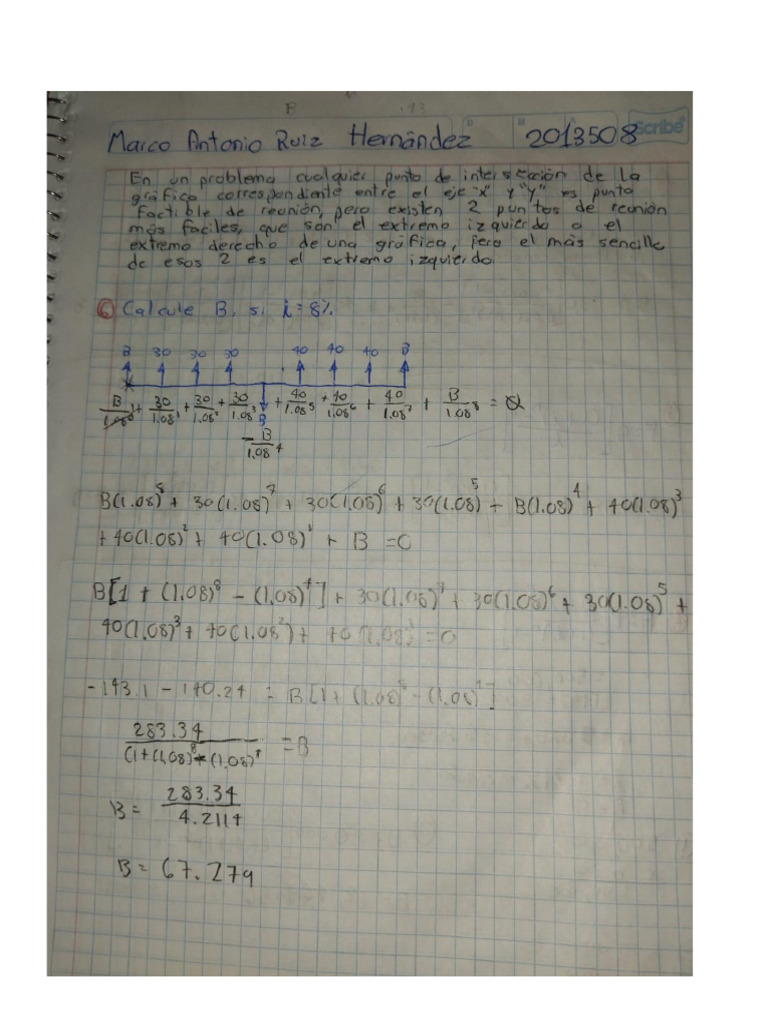 Marco Antonio Ruiz Hernández 2013508 Scribe
En un problema cualquier punto de intersección de la
gráfica correspondiente entre el eje "x" y "y" es punto
factible de reunión, pero existen 2 puntos de reunión
más faciles, que son el extremo izquierdo o el
extremo derecho de una gráfica, pero el más sencille
de esos 2 es el extremo izquierdo.
6 Calcule B, si i=8%
B 30 30 30 40 40 40 B
B
B/1.08⁰ + 30/1.08¹ + 30/1.08² + 30/1.08³ + 40/1.08⁵ + 40/1.08⁶ + 40/1.08⁷ + B/1.08⁸ = 0
- B/1.08⁴
B(1.08)⁸ + 30(1.08)⁷ + 30(1.08)⁶ + 30(1.08)⁵ - B(1.08)⁴ + 40(1.08)³
+ 40(1.08)² + 40(1.08)¹ + B = 0
B[1 + (1.08)⁸ - (1.08)⁴] + 30(1.08)⁷ + 30(1.08)⁶ + 30(1.08)⁵ +
40(1.08)³ + 40(1.08²) + 40(1.08)¹ = 0
-143.1 - 140.24 = B[1 + (1.08)⁸ - (1.08)⁴]
283.34/(1+(1.08)⁸+(1.08)⁴ = B
B = 283.34/4.2114
B = 67.279